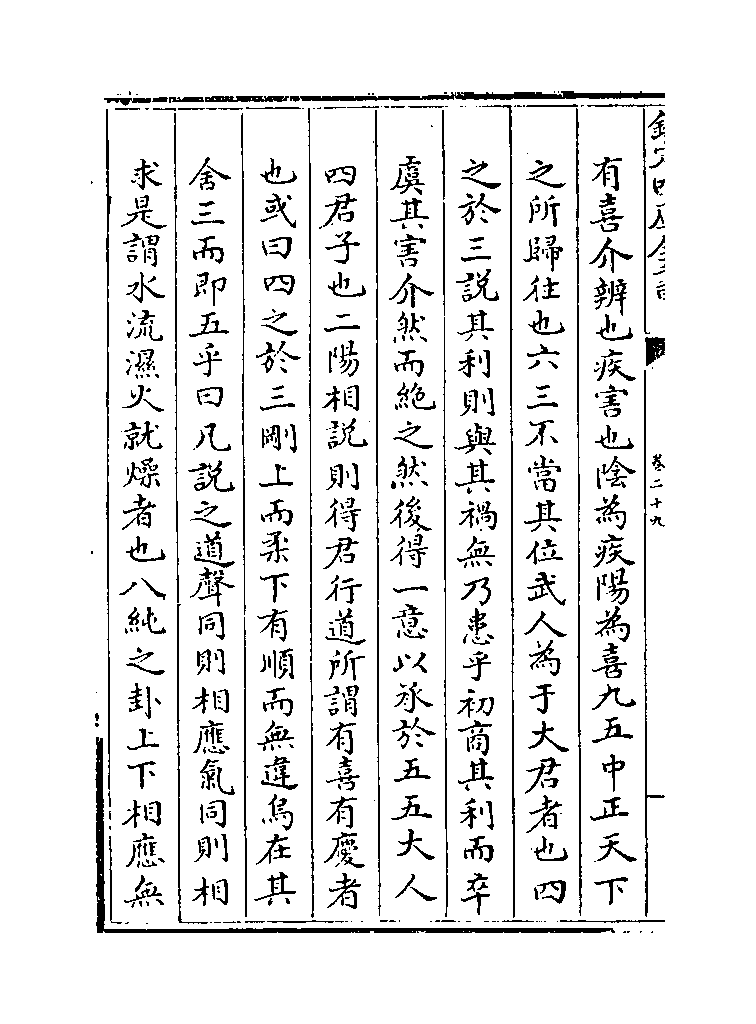 欽定四庫全書
卷二十九
有喜介辨也疾害也陰為疾陽為喜九五中正天下
之所歸往也六三不當其位武人為于大君者也四
之於三説其利則與其禍無乃患乎初商其利而卒
虞其害介然而絶之然後得一意以承於五五大人
四君子也二陽相説則得君行道所謂有喜有慶者
也或曰四之於三剛上而柔下有順而無違烏在其
舍三而即五乎曰凡説之道聲同則相應氣同則相
求是謂水流濕火就燥者也八純之卦上下相應無